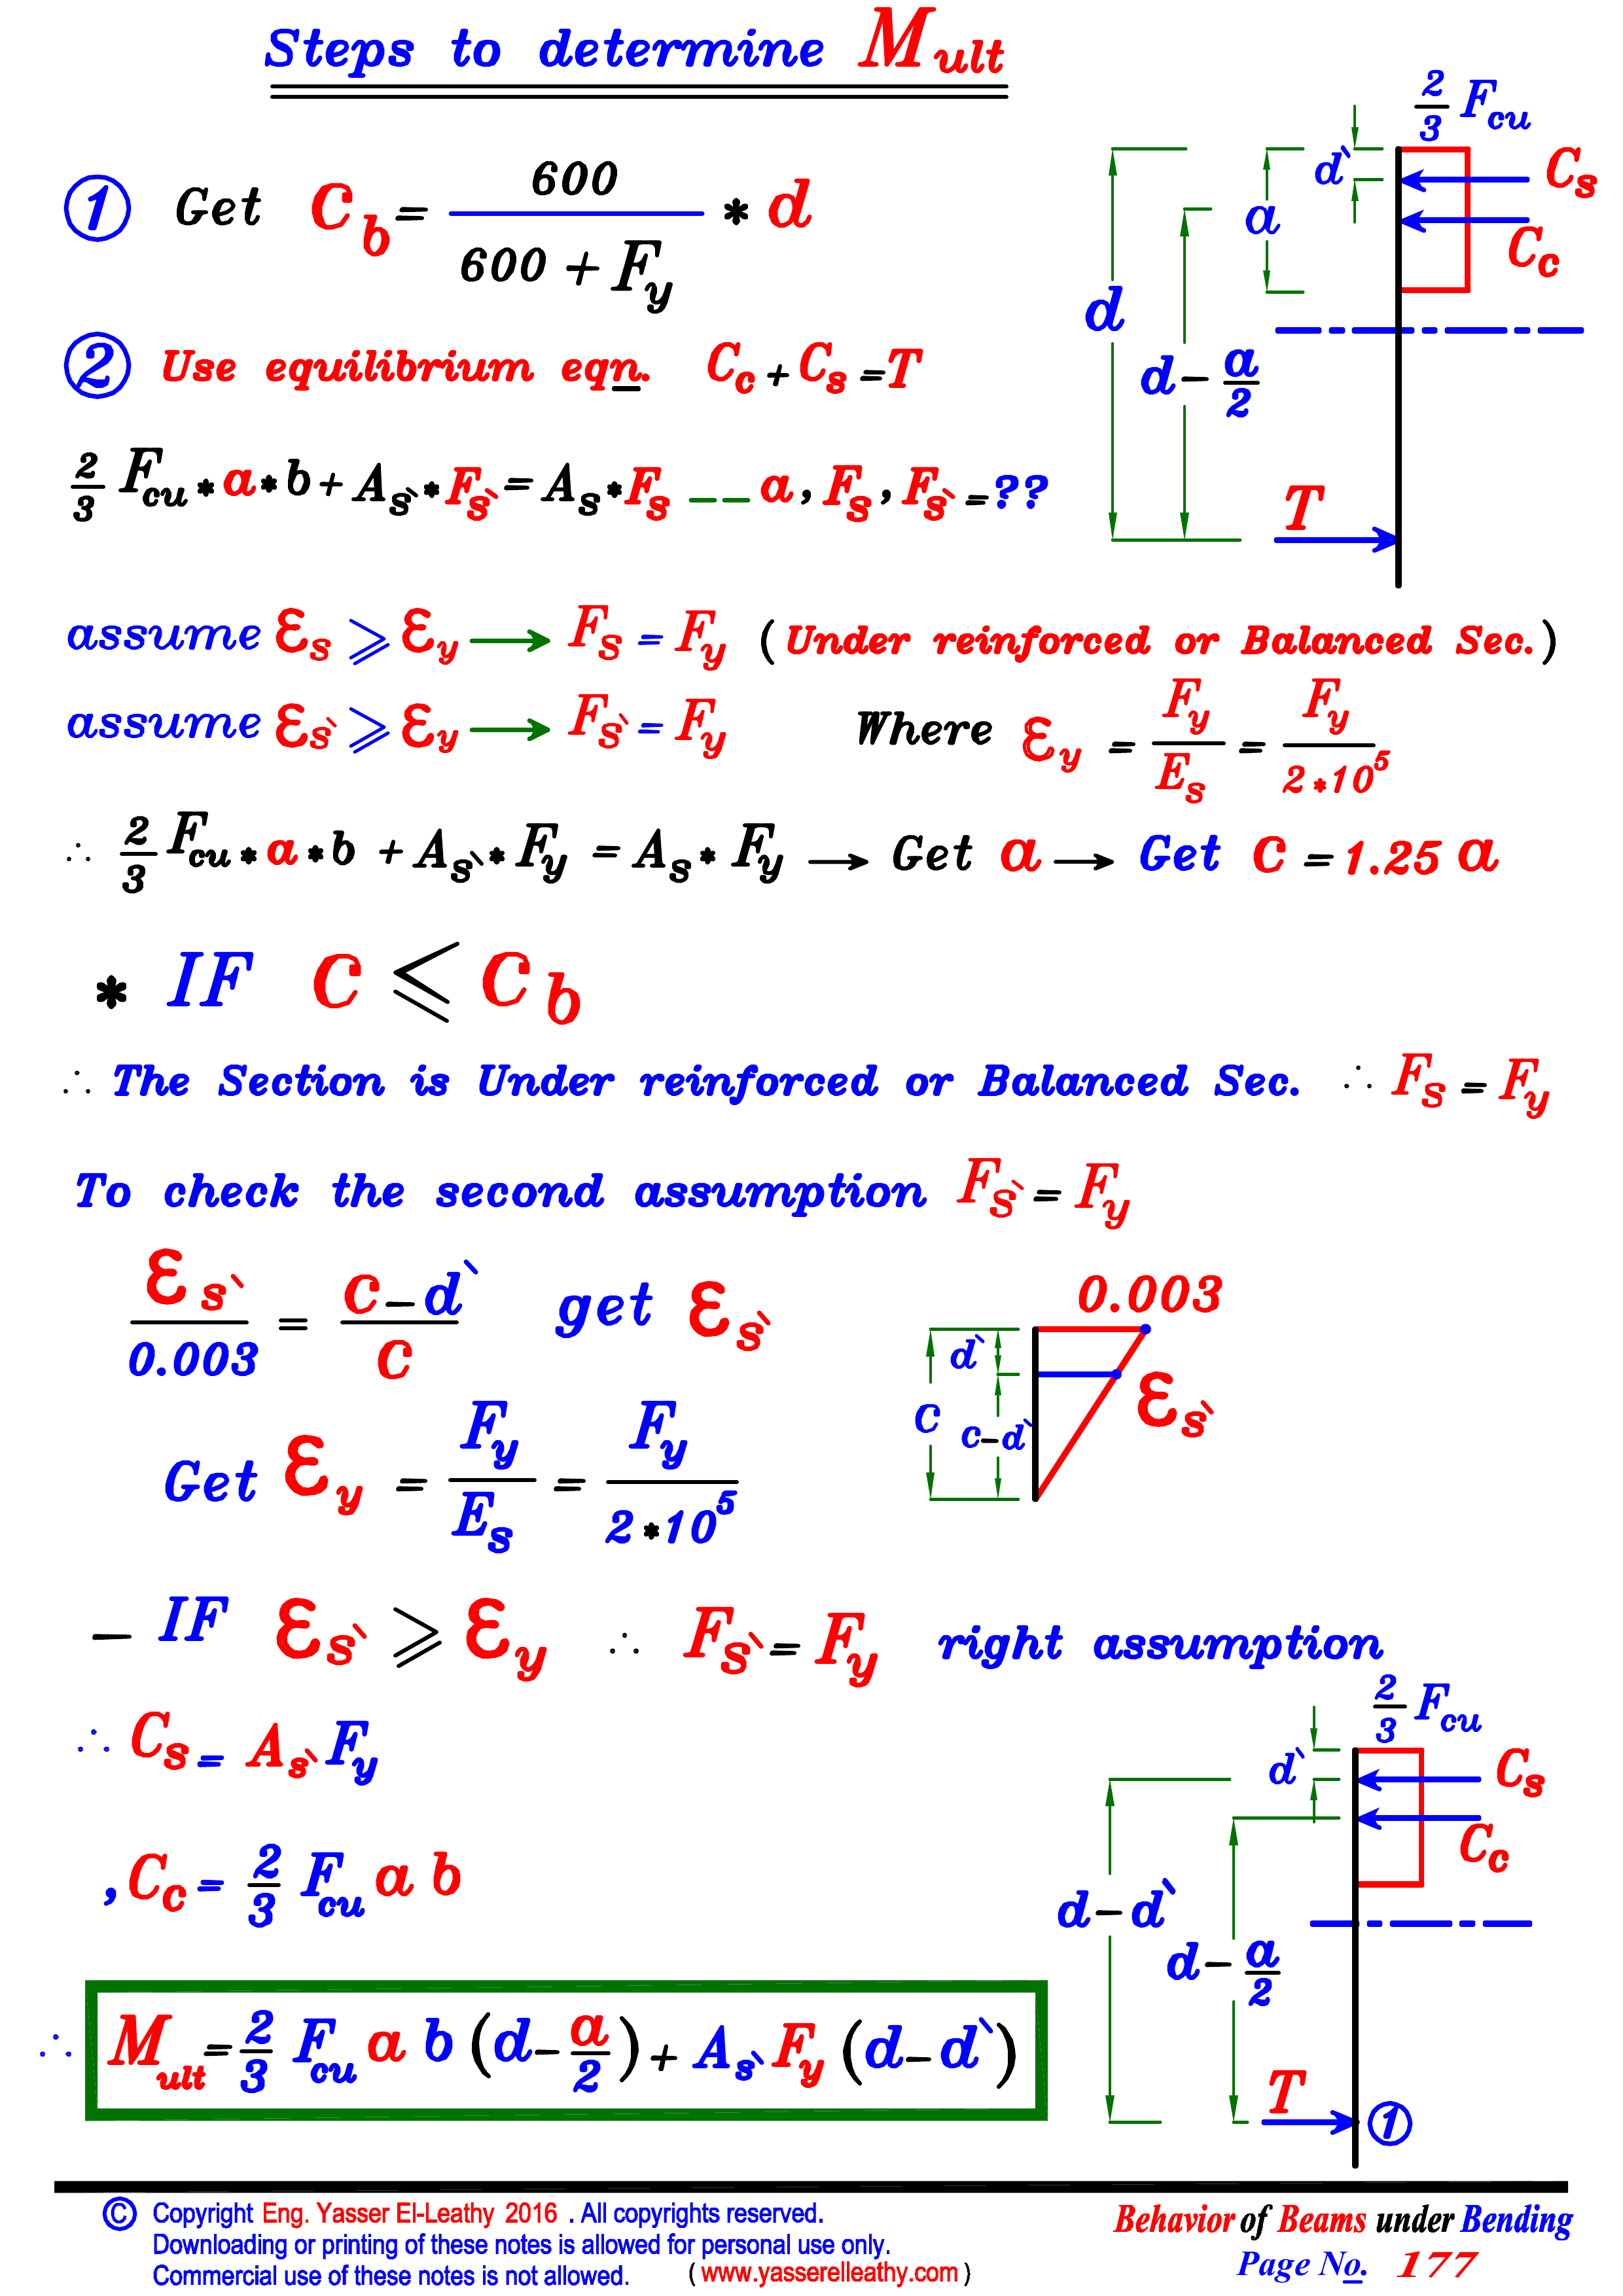 Steps to determine M_ult
2/3 F_cu
① Get C_b = 600 / (600 + F_y) * d
d` C_s
a C_c
d
d - a/2
② Use equilibrium eqn. C_c + C_s = T
2/3 F_cu * a * b + A_s` * F_s` = A_s * F_s __ a, F_s, F_s` = ??
T
assume Ɛ_s ⩾ Ɛ_y → F_s = F_y (Under reinforced or Balanced Sec.)
assume Ɛ_s` ⩾ Ɛ_y → F_s` = F_y Where Ɛ_y = F_y / E_s = F_y / 2*10^5
∴ 2/3 F_cu * a * b + A_s` * F_y = A_s * F_y → Get a → Get C = 1.25 a
* IF C ⩽ C_b
∴ The Section is Under reinforced or Balanced Sec. ∴ F_s = F_y
To check the second assumption F_s` = F_y
Ɛ_s` / 0.003 = (C - d`) / C get Ɛ_s`
0.003
d`
C c-d` Ɛ_s`
Get Ɛ_y = F_y / E_s = F_y / 2*10^5
- IF Ɛ_s` ⩾ Ɛ_y ∴ F_s` = F_y right assumption
∴ C_s = A_s` F_y
2/3 F_cu
d` C_s
C_c
, C_c = 2/3 F_cu a b
d - d`
d - a/2
∴ M_ult = 2/3 F_cu a b (d - a/2) + A_s` F_y (d - d`)
T ①
© Copyright Eng. Yasser El-Leathy 2016 . All copyrights reserved.
Downloading or printing of these notes is allowed for personal use only.
Commercial use of these notes is not allowed. ( www.yasserelleathy.com )
Behavior of Beams under Bending
Page No. 177